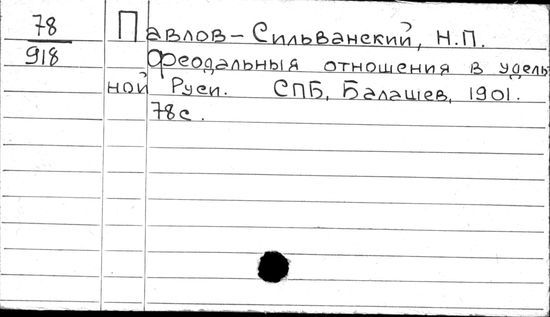 78
918
Павлов-Сильванский, Н.П.
Феодальныя отношения в удель
ной Руси. СПБ, Балашев, 1901.
78с.